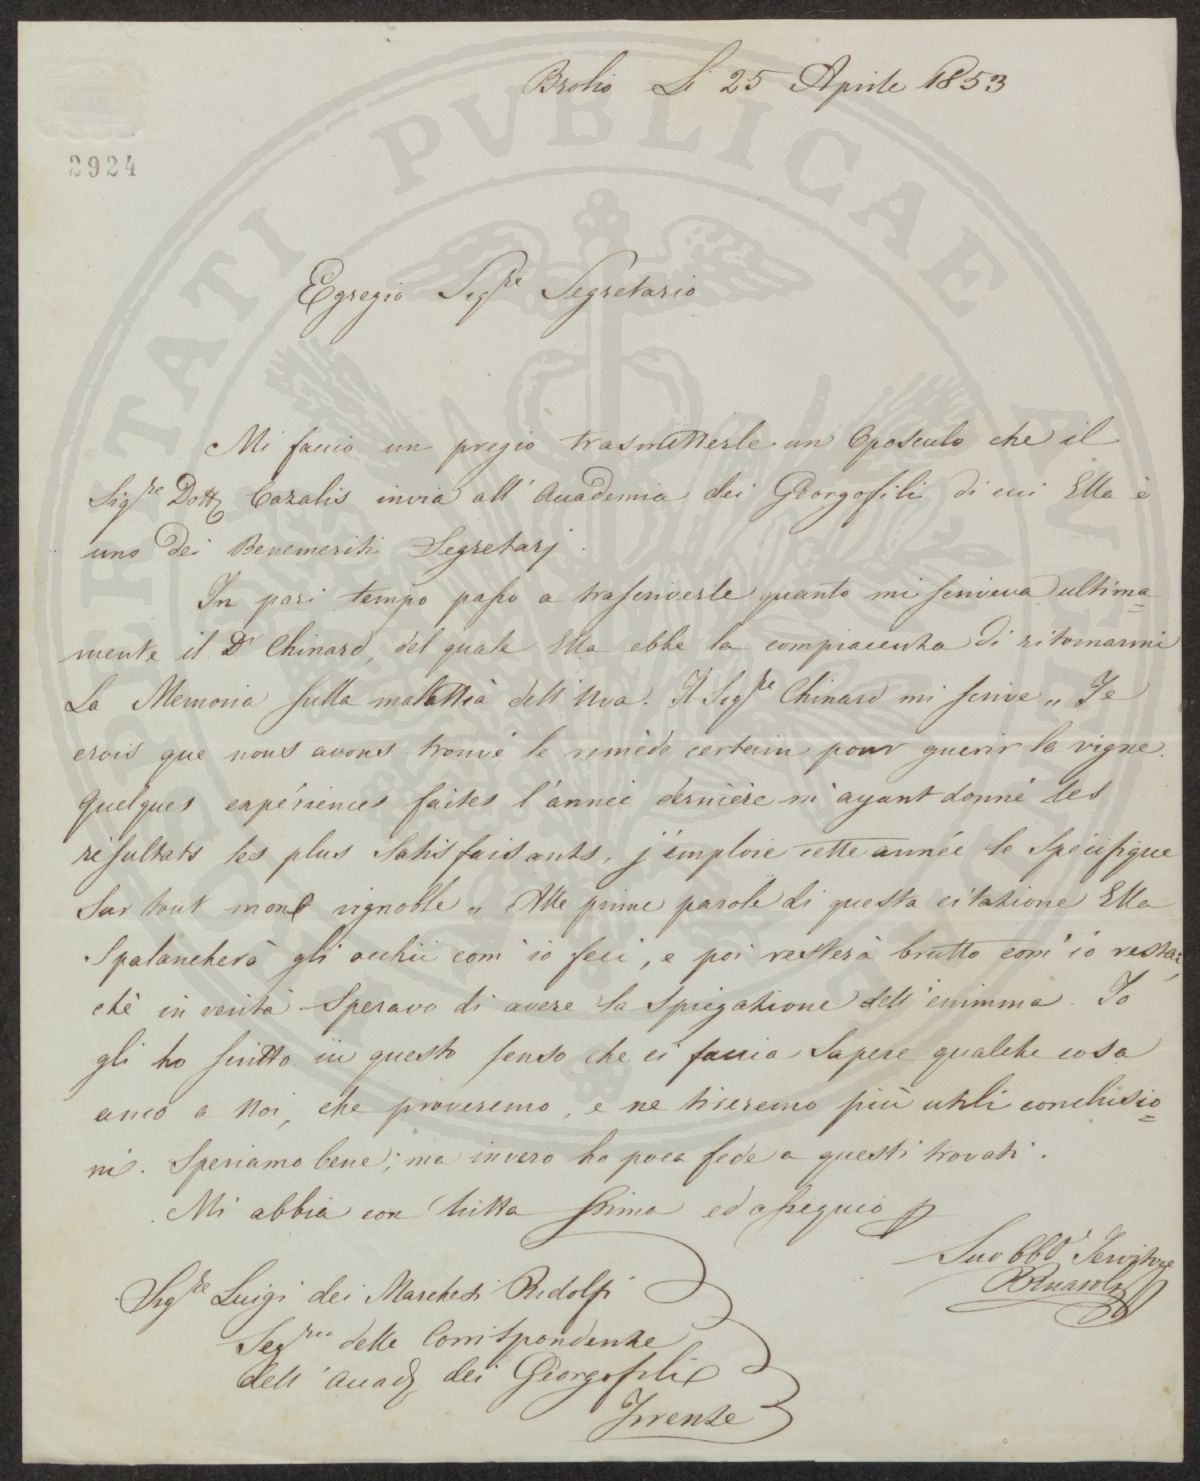 Brolio Li 25 Aprile 1853
2924
PROSPERITATI PVBLICAE AVGENDAE
Egregio Sigre Segretario
Mi faccio un pregio trasmetterle un Opusculo che il
Sigre Dott Cazalis invia all' Accademia dei Georgofili di cui Ella è
uno dei Benemeriti Segretarj.
In pari tempo passo a trascriverle quanto mi scriveva ultima=
mente il Dr Chinard, del quale Ella ebbe la compiacenza di ritornarmi
La Memoria sulla malattia dell' Uva. Il Sigre Chinard mi scrive „ Je
crois que nous avons trouvé le remède certain pour guerir la vigne.
Quelques expériences faites l'année dernière m'ayant donné des
résultats les plus satisfaisants, j'emploie cette année le Spécifique
Sur tout mon vignoble „ Alle prime parole di questa citazione Ella
Spalancherà gli occhii com' io feci, e poi resterà brutto com' io restai,
chè in verità Speravo di avere la Spiegazione dell' enimma. Io
gli ho scritto in questo senso che ci faccia Sapere qualche cosa
anco a Noi, che proveremo, e ne tireremo più utili conchiusio=
ni. Speriamo bene; ma invero ho poca fede a questi trovati.
Mi abbia con tutta stima ed ossequio
Suo Obbo Servitore
BRicasoli
Sigre Luigi dei Marchesi Ridolfi
Segrio delle Corrispondenze
dell' Accad dei Georgofili
Firenze